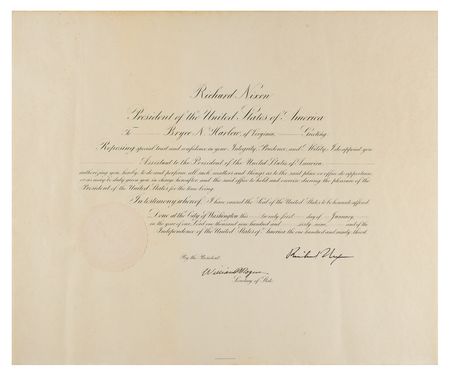 Richard Nixon
President of the United States of America
To Bryce N. Harlow, of Virginia, Greeting
Reposing special trust and confidence in your Integrity, Prudence, and Ability I do appoint you
Assistant to the President of the United States of America
authorizing you, hereby, to do and perform all such matters and things as to the said place or office do appertain
or as may be duly given you in charge hereafter and the said office to hold and exercise during the pleasure of
the President of the United States for the time being.
In testimony whereof, I have caused the Seal of the United States to be hereunto affixed
Done at the City of Washington this twenty-first day of January,
in the year of our Lord one thousand nine hundred and sixty-nine, and of the
Independence of the United States of America the one hundred and ninety-third.
By the President:
Richard Nixon
William P. Rogers
Secretary of State.